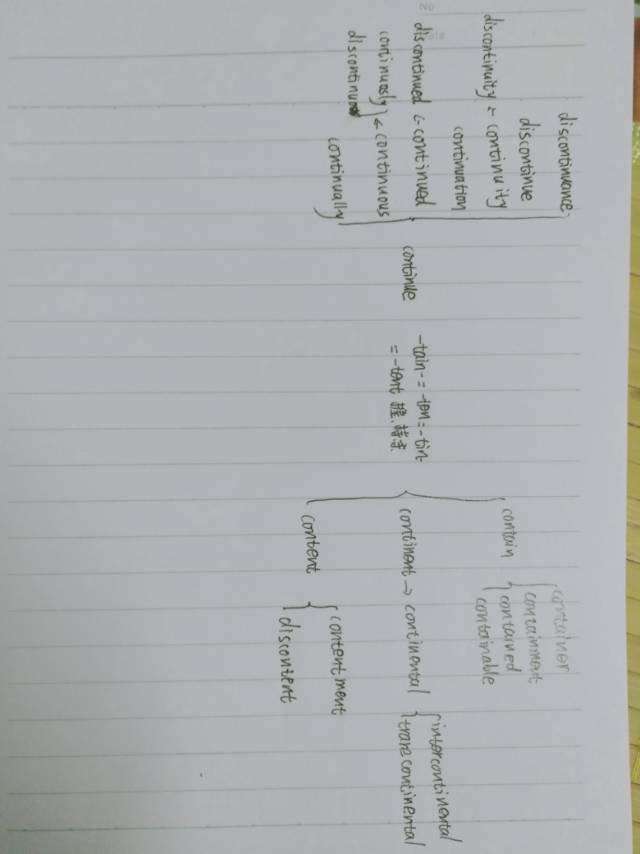 discontinuance
discontinue
discontinuity ← continuity
continuation
discontinued ← continued
continuously } ← continuous
discontinuous
continually
continue
-tain- = -ten = -tin-
= -tent 握.持.
contain
container
containment
contained
containable
continent → continental
intercontinental
transcontinental
content
contentment
discontent